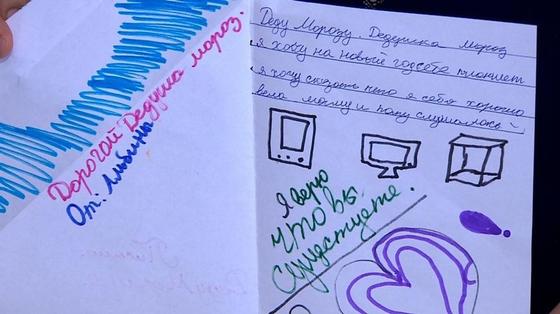 Дорогой Дедушка мороз.
От: Альбины
Деду Морозу. Дедушка мороз
я хочу на новый год себе планшет
я хочу сказать что я себя хорошо
вела маму и папу слушалась
Я верю
что вы
существуете.